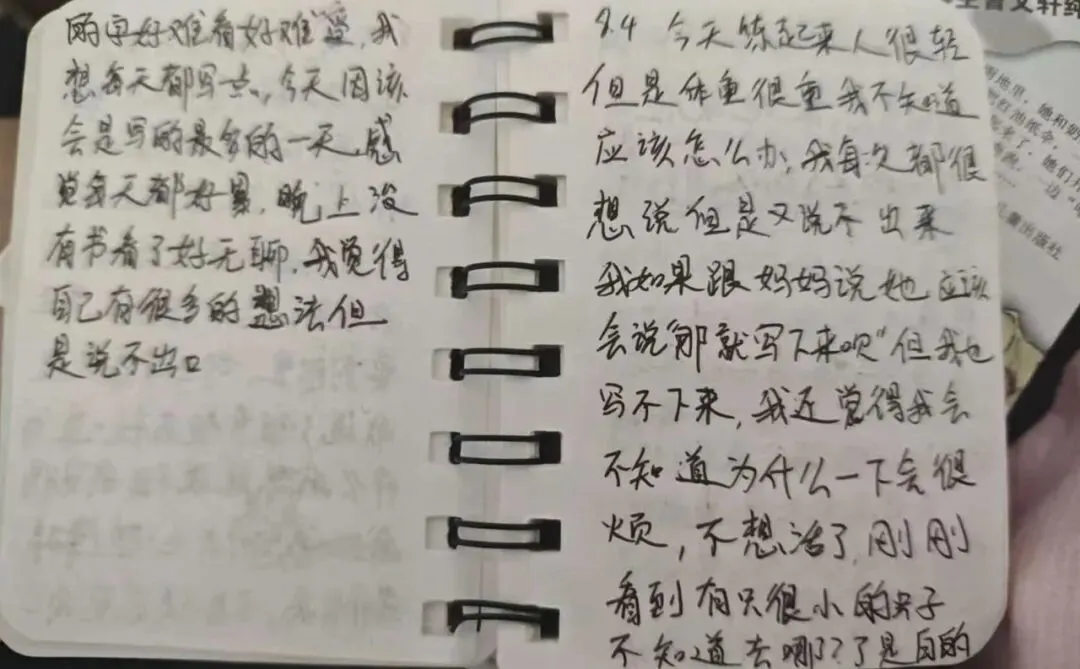 的字好难看好难受,我
想每天都写一点,今天因该
会是写的最多的一天,感
觉每天都好累,晚上没
有书看了好无聊,我觉得
自己有很多的想法但
是说不出口
9.4 今天练起来人很轻
但是体重很重我不知道
应该怎么办,我每次都很
想说但是又说不出来
我如果跟妈妈说她应该
会说"那就写下来呗"但我也
写不下来,我还觉得我会
不知道为什么一下会很
烦,不想活了,刚刚
看到有只很小的
不知道去哪了了是白的
文轩
地里,她和奶
红油纸伞,
来了,她们
一边
儿童出版社